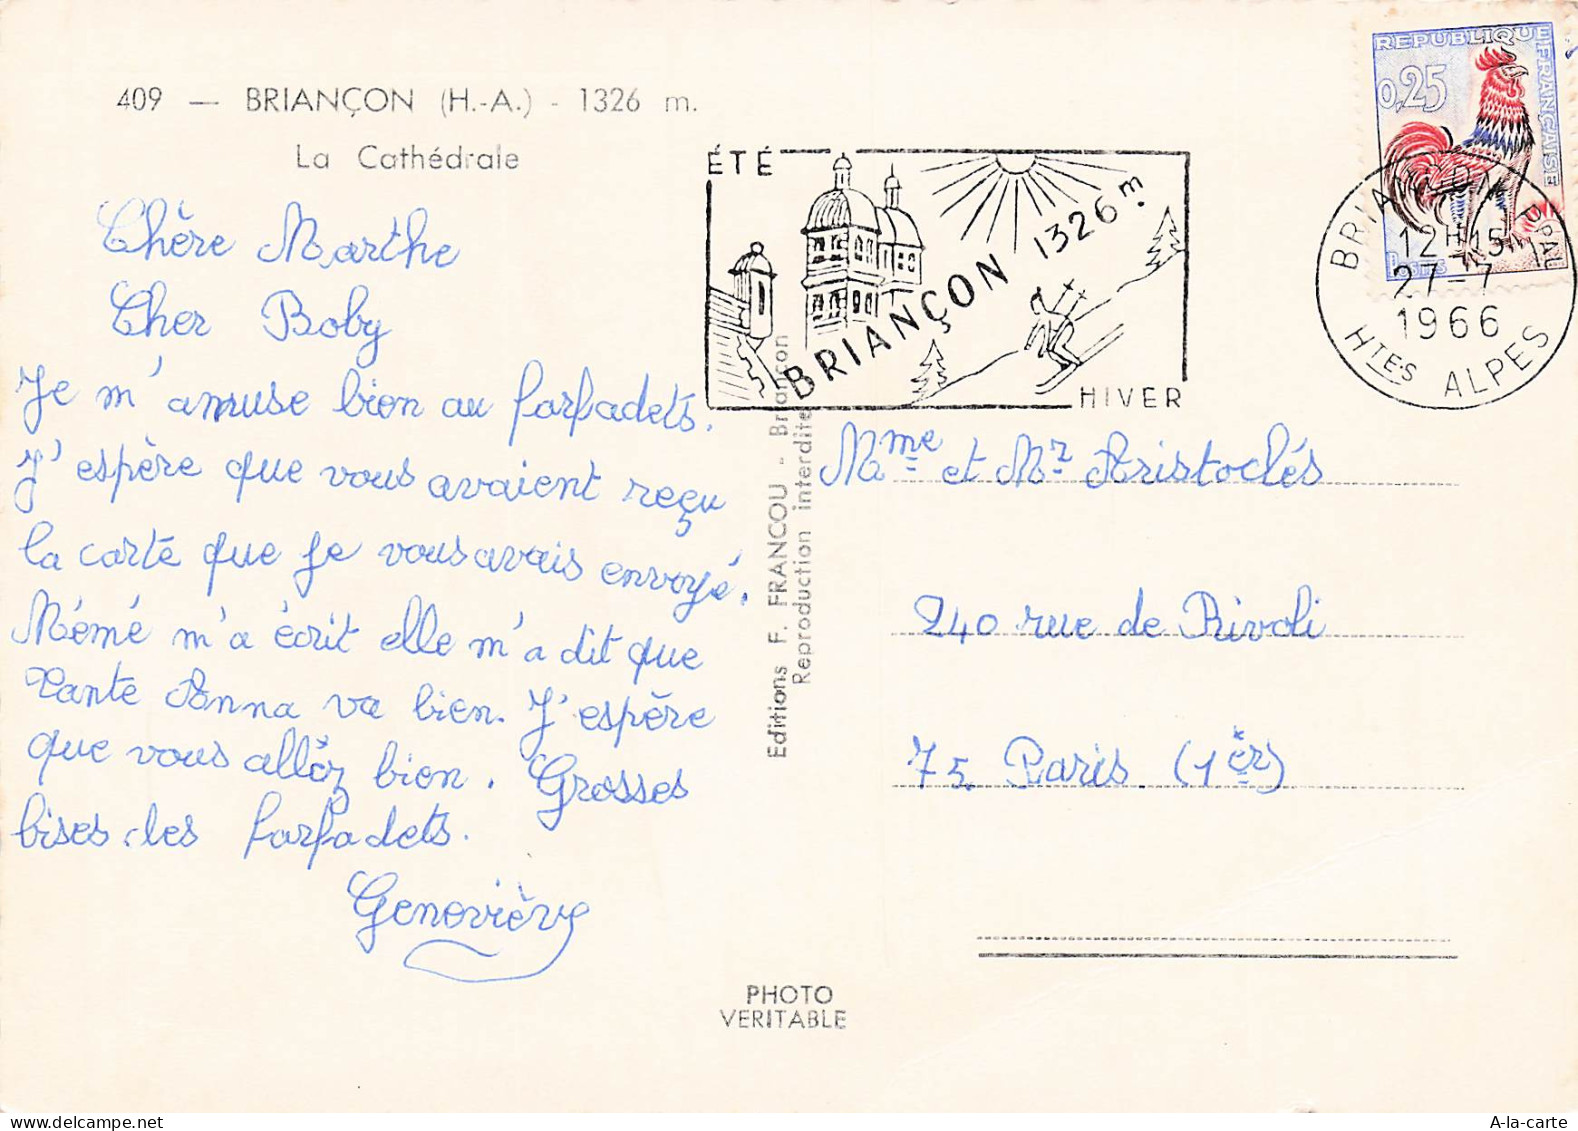 409 — BRIANÇON (H.-A.) - 1326 m.
La Cathédrale
Chère Marthe
Cher Boby
Je m'amuse bien au farfadets.
J'espère que vous avaient reçu
la carte que je vous avais envoyé.
Mémé m'a écrit elle m'a dit que
Tante Anna va bien. J'espère
que vous allez bien. Grosses
bises. les farfadets.
Geneviève
Editions F. FRANCOU - Briançon
Reproduction interdite
PHOTO
VERITABLE
ÉTÉ
BRIANÇON 1326 m
HIVER
REPUBLIQUE FRANÇAISE
0,25
POSTES
BRIANÇON PPAL
12H15
27-7
1966
HTES ALPES
Mme et Mr Aristoclés
240 rue de Rivoli
75 Paris (1èr)
A-la-carte